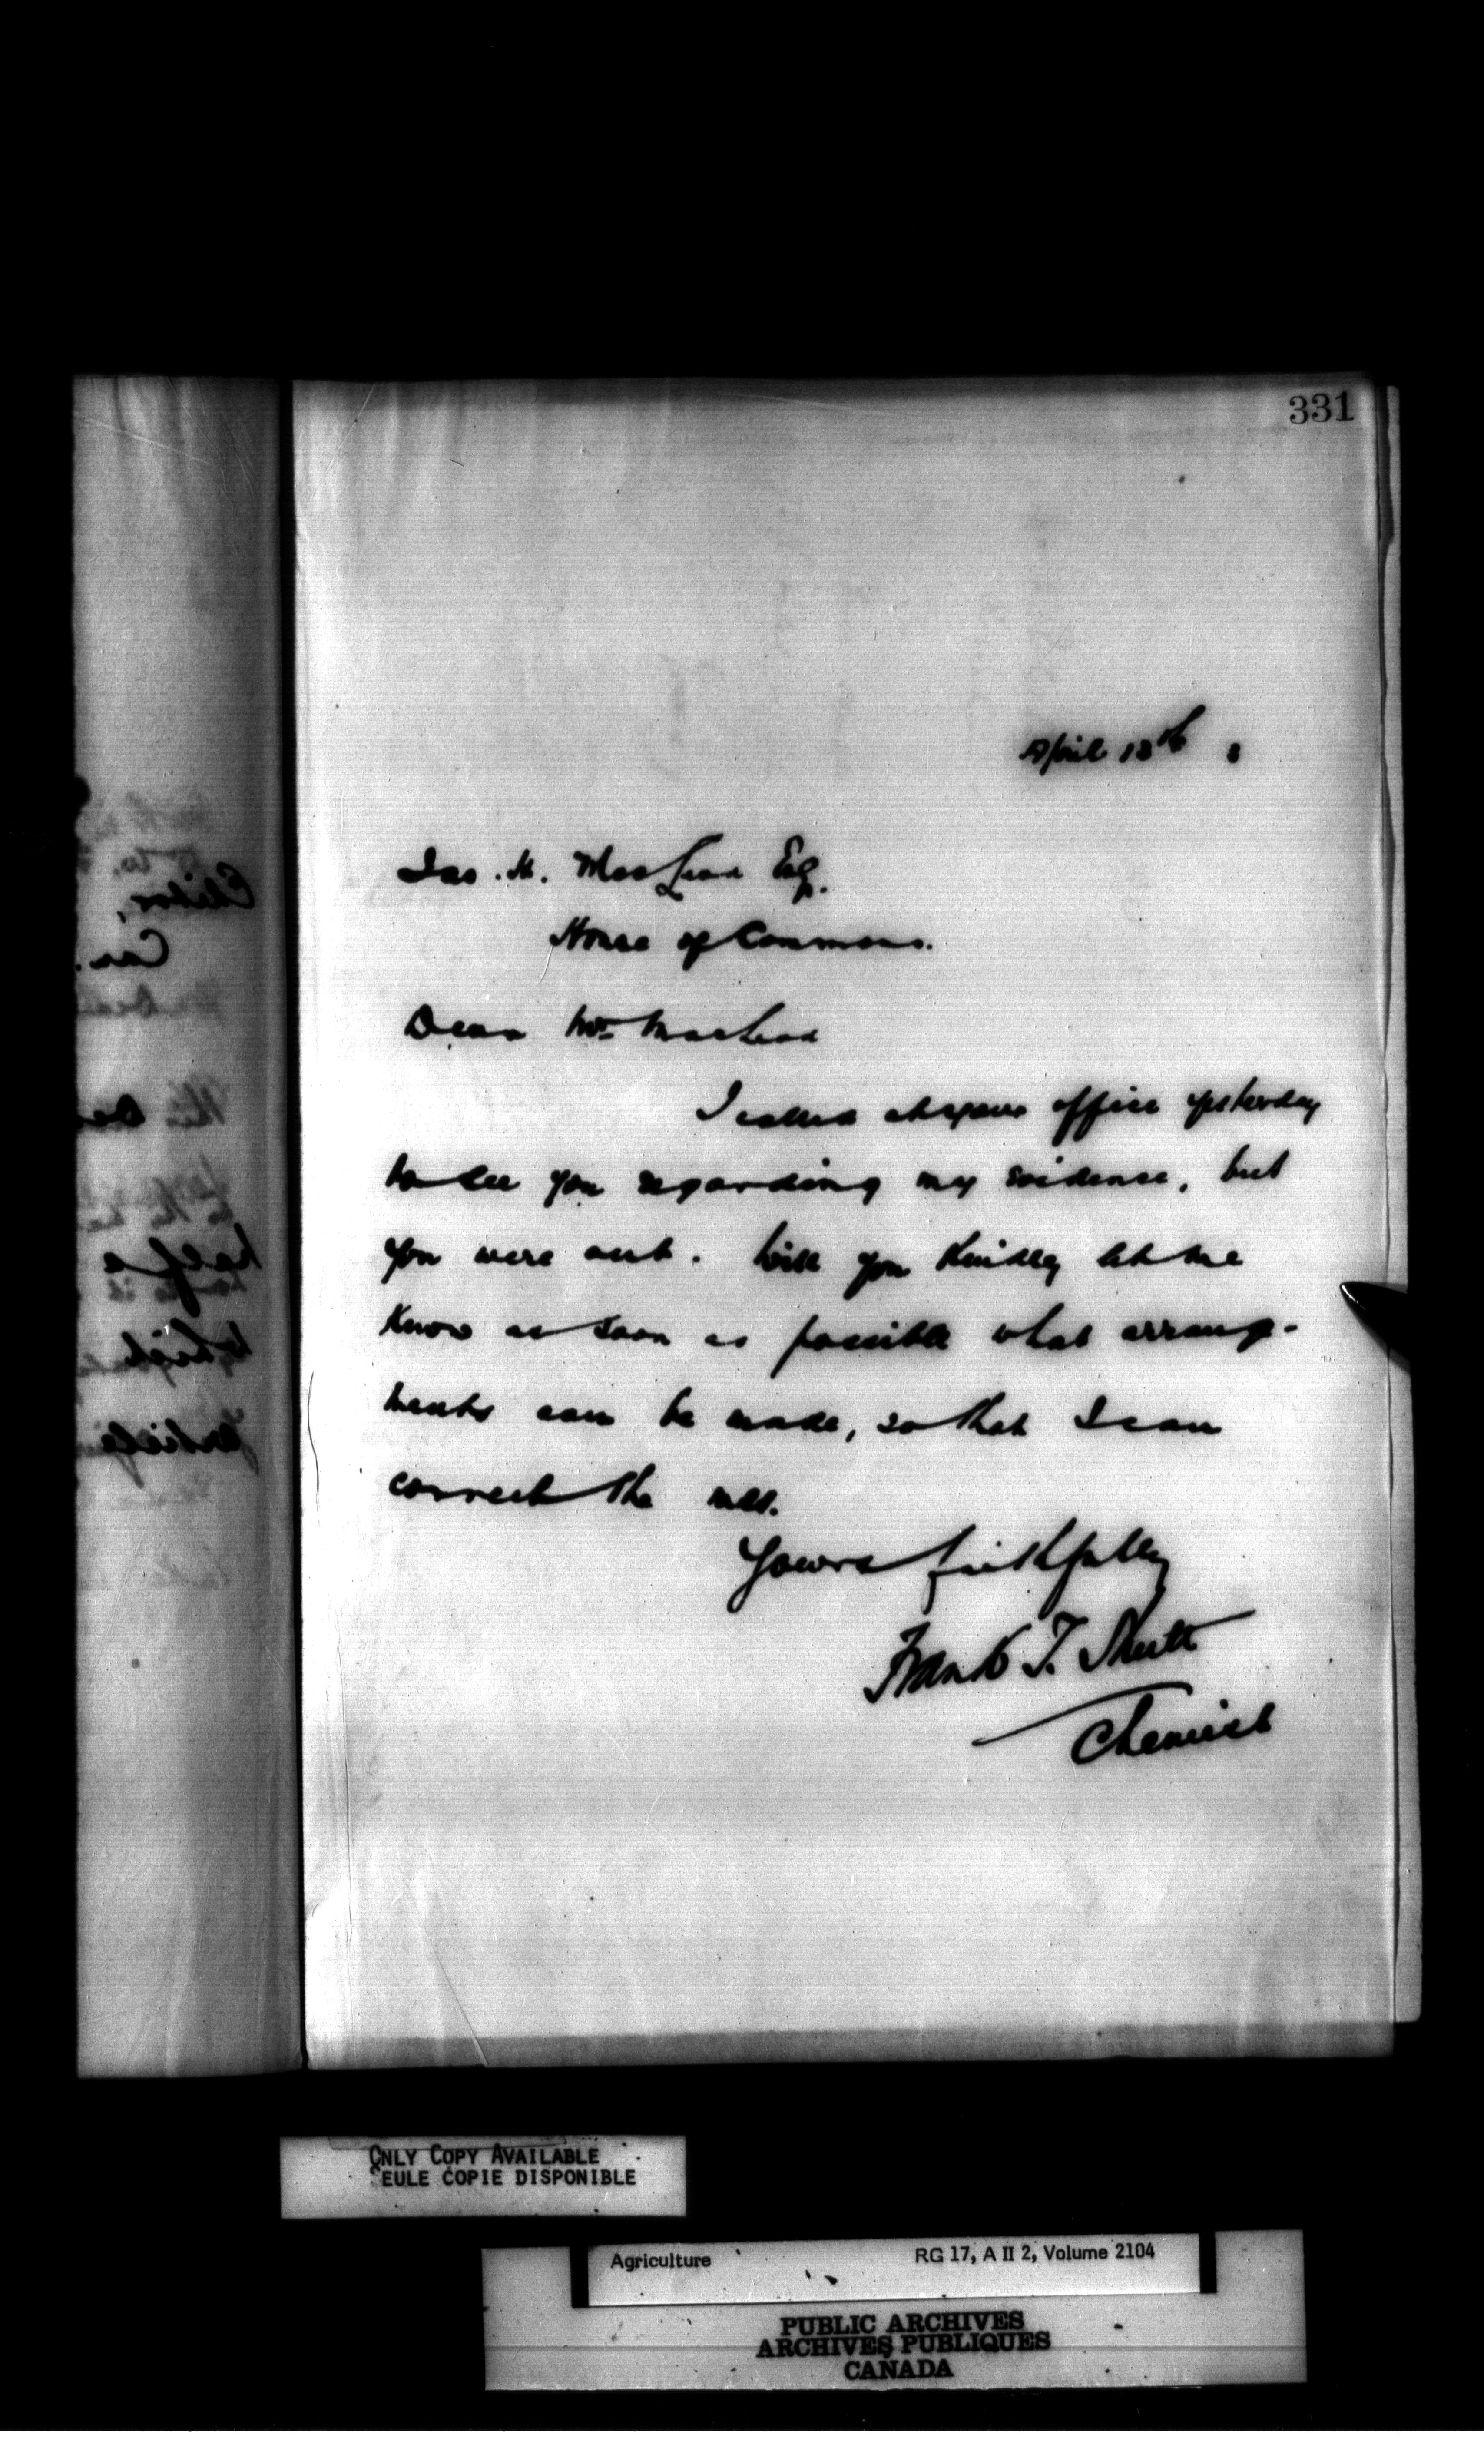 331
April 13th 8
Jas. H. MacLeod Esq.
House of Commons.
Dear Mr MacLeod
I called at your office yesterday
to see you regarding my evidence, but
you were out. Will you kindly let me
know as soon as possible what arrange-
ments can be made, so that I can
correct the mss.
Yours faithfully
Frank T. Shutt
Chemist
ONLY COPY AVAILABLE
EULE COPIE DISPONIBLE
Agriculture RG 17, A II 2, Volume 2104
PUBLIC ARCHIVES
ARCHIVES PUBLIQUES
CANADA